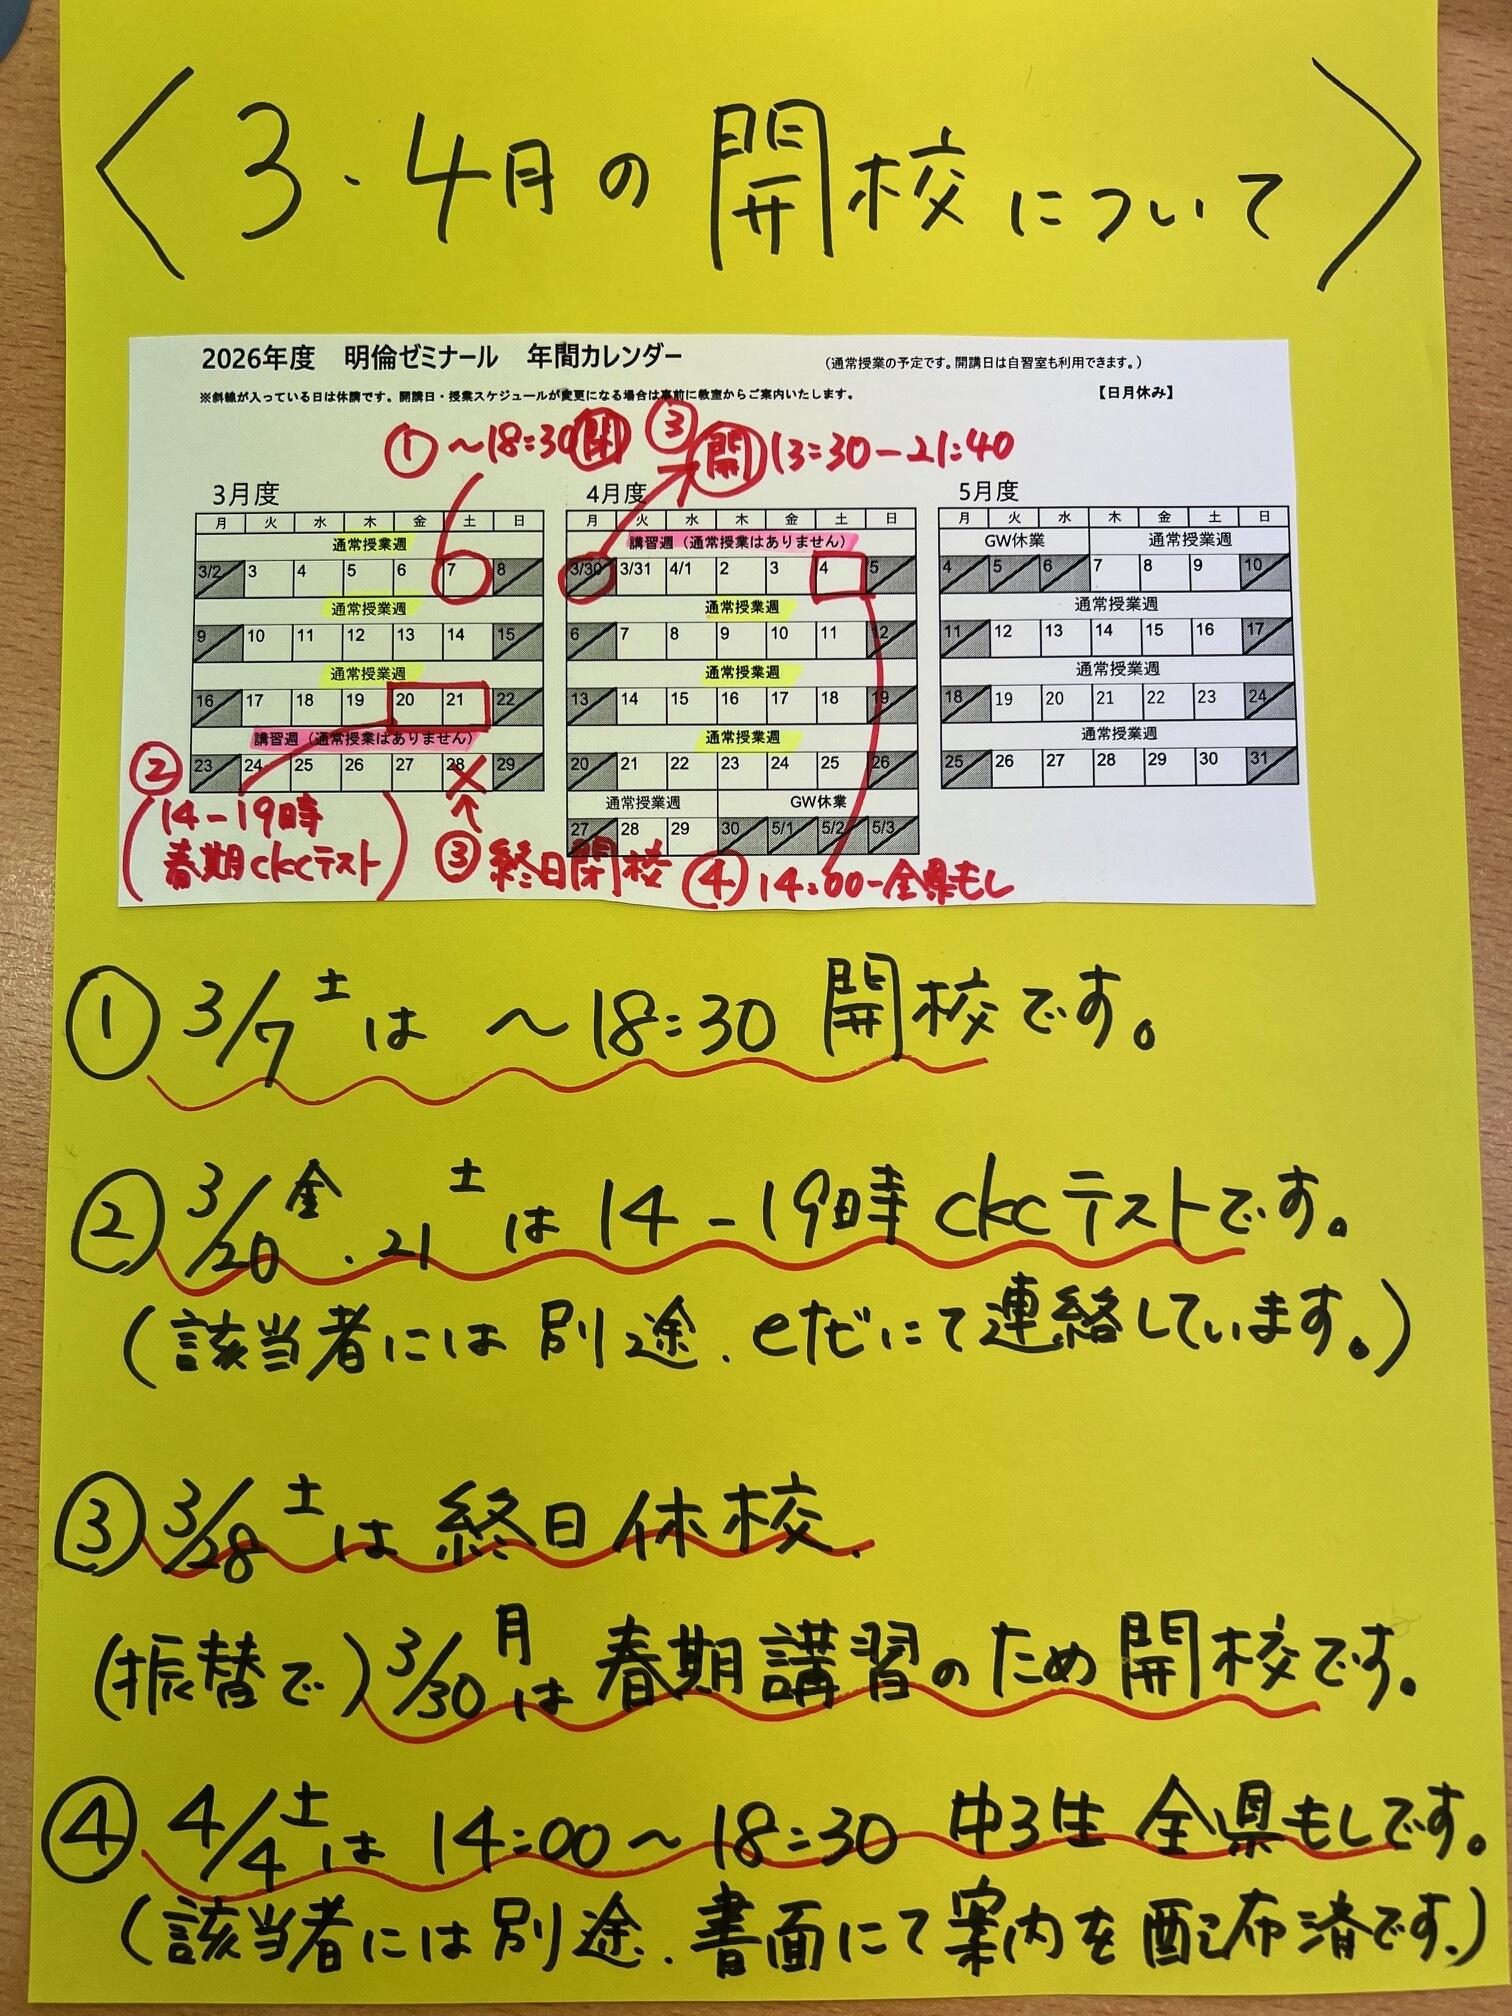 〈3・4月の開校について〉
2026年度 明倫ゼミナール 年間カレンダー
（通常授業の予定です。開講日は自習室も利用できます。）
※斜線が入っている日は休講です。開講日・授業スケジュールが変更になる場合は事前に教室からご案内いたします。
【日月休み】
① 〜18:30 閉
③ 開 13:30-21:40
3月度
月 火 水 木 金 土 日
通常授業週
3/2 3 4 5 6 7 8
通常授業週
9 10 11 12 13 14 15
通常授業週
16 17 18 19 20 21 22
講習週（通常授業はありません）
23 24 25 26 27 28 29
② 14-19時
(春期ckcテスト)
③ 終日閉校
4月度
月 火 水 木 金 土 日
講習週（通常授業はありません）
3/30 3/31 4/1 2 3 4 5
通常授業週
6 7 8 9 10 11 12
通常授業週
13 14 15 16 17 18 19
通常授業週
20 21 22 23 24 25 26
通常授業週 GW休業
27 28 29 30 5/1 5/2 5/3
④ 14:00-全県もし
5月度
月 火 水 木 金 土 日
GW休業 通常授業週
4 5 6 7 8 9 10
通常授業週
11 12 13 14 15 16 17
通常授業週
18 19 20 21 22 23 24
通常授業週
25 26 27 28 29 30 31
① 3/7土は 〜18:30 開校です。
② 3/20金・21土は 14-19時 ckcテストです。
(該当者には別途、eナビにて連絡しています。)
③ 3/28土は 終日休校、
(振替で) 3/30月は 春期講習のため開校です。
④ 4/4土は 14:00〜18:30 中3生 全県もしです。
(該当者には別途、書面にて案内を配布済です。)